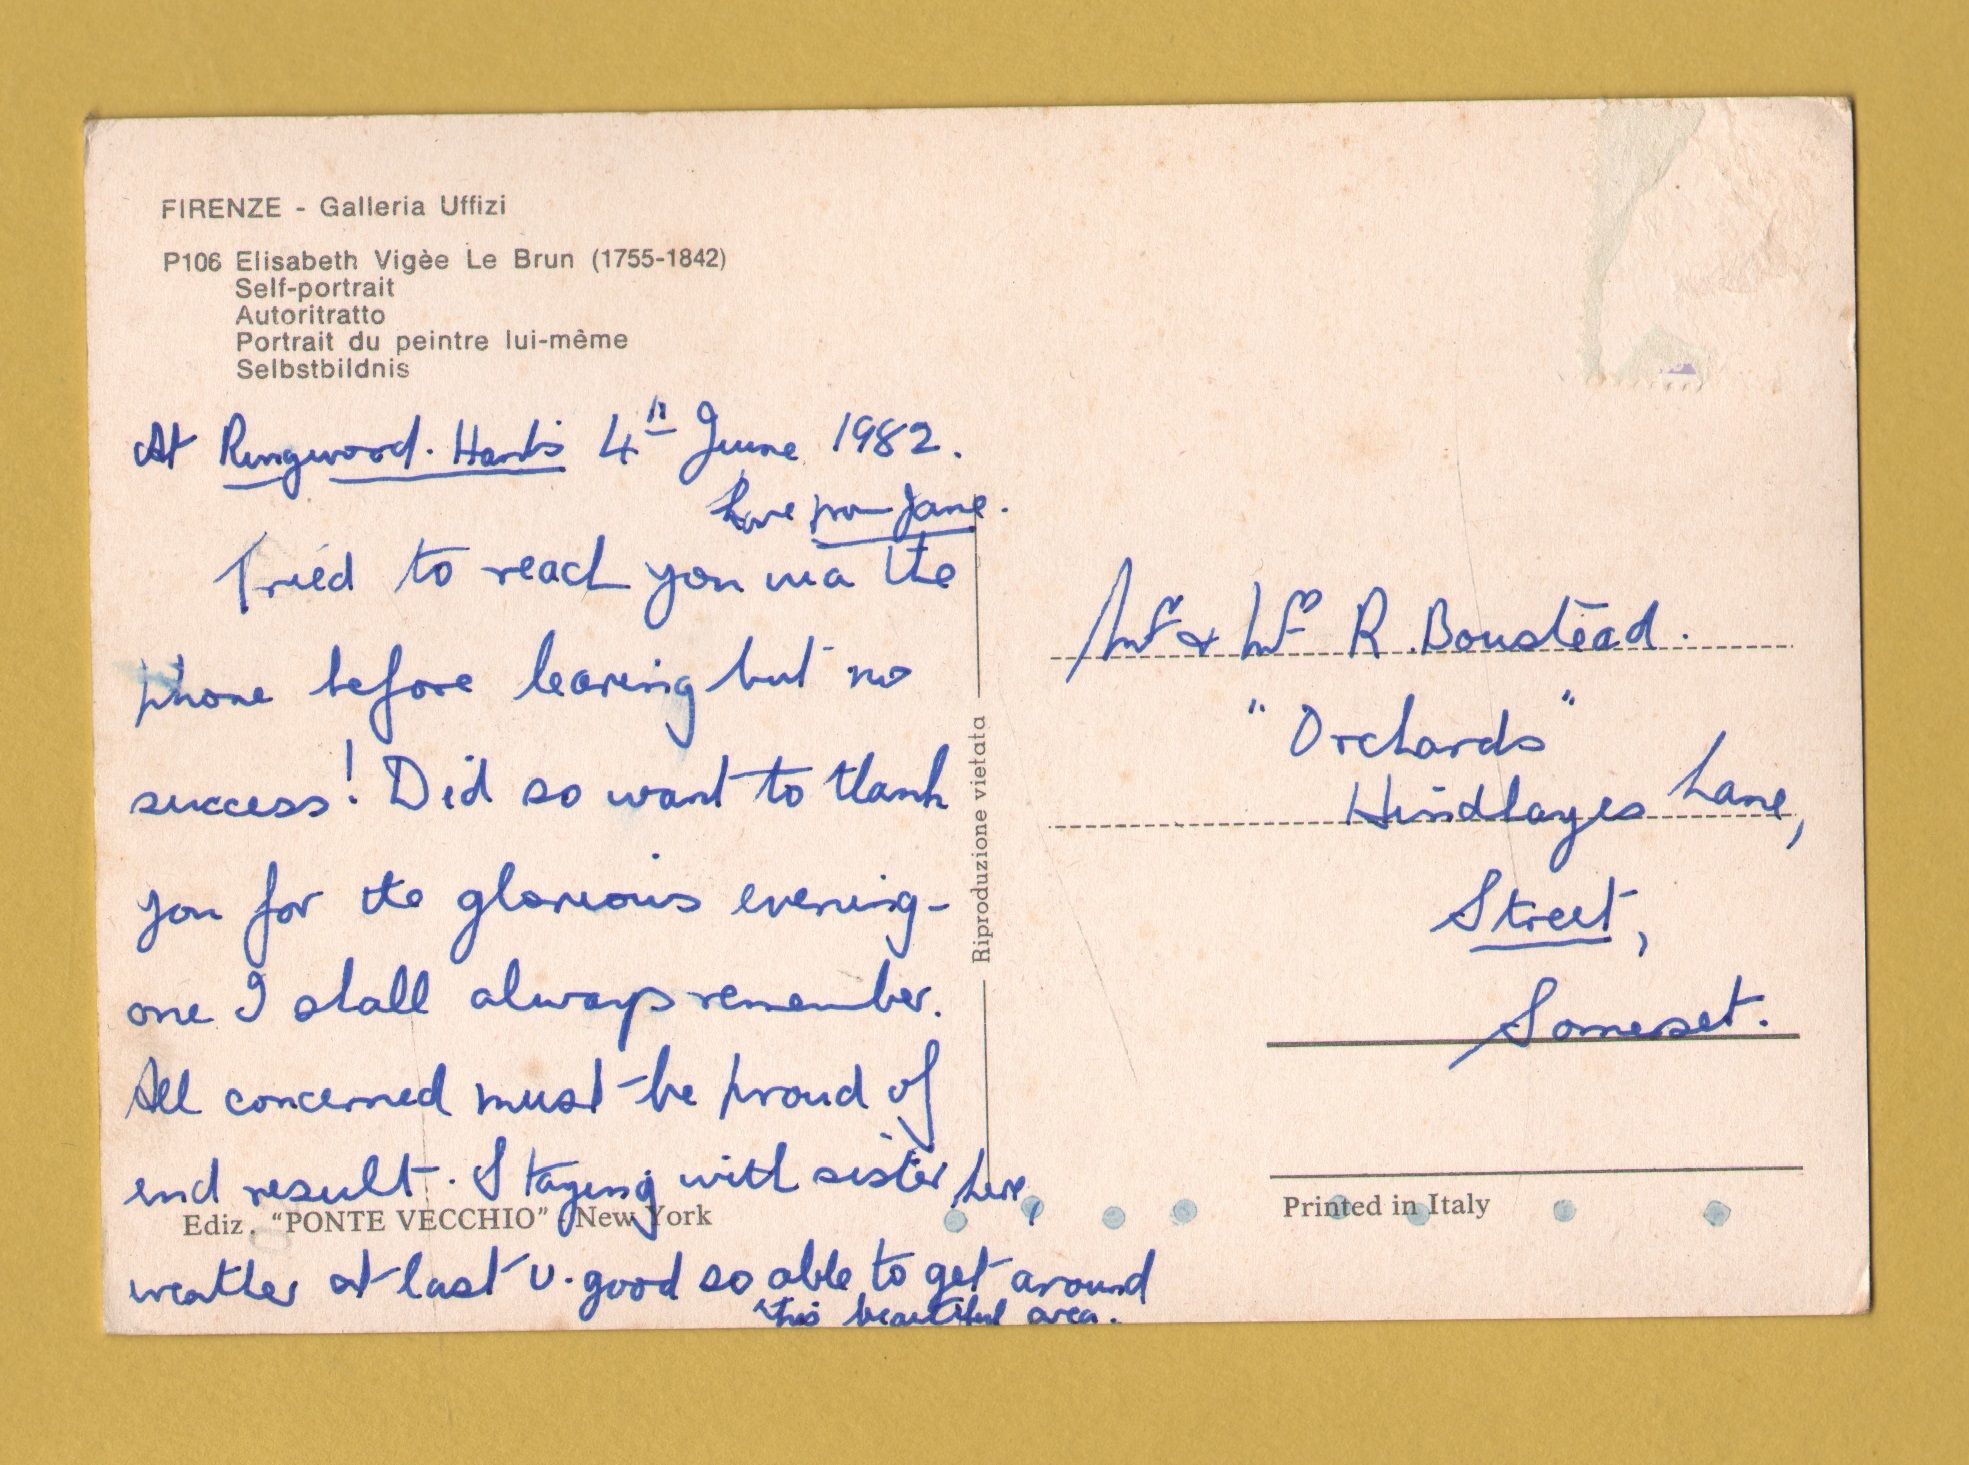 FIRENZE - Galleria Uffizi
P106 Elisabeth Vigèe Le Brun (1755-1842)
Self-portrait
Autoritratto
Portrait du peintre lui-même
Selbstbildnis
At Ringwood. Hants 4th June 1982.
Love from Jane.
Tried to reach you via the
phone before leaving but no
success! Did so want to thank
you for the glorious evening -
one I shall always remember.
All concerned must be proud of
end result. Staying with sister here,
weather at last v. good so able to get around
this beautiful area.
Ediz. "PONTE VECCHIO" - New York
Riproduzione vietata
Mr & Mrs R. Boustead.
"Orchards"
Hindhayes Lane,
Street,
Somerset.
Printed in Italy